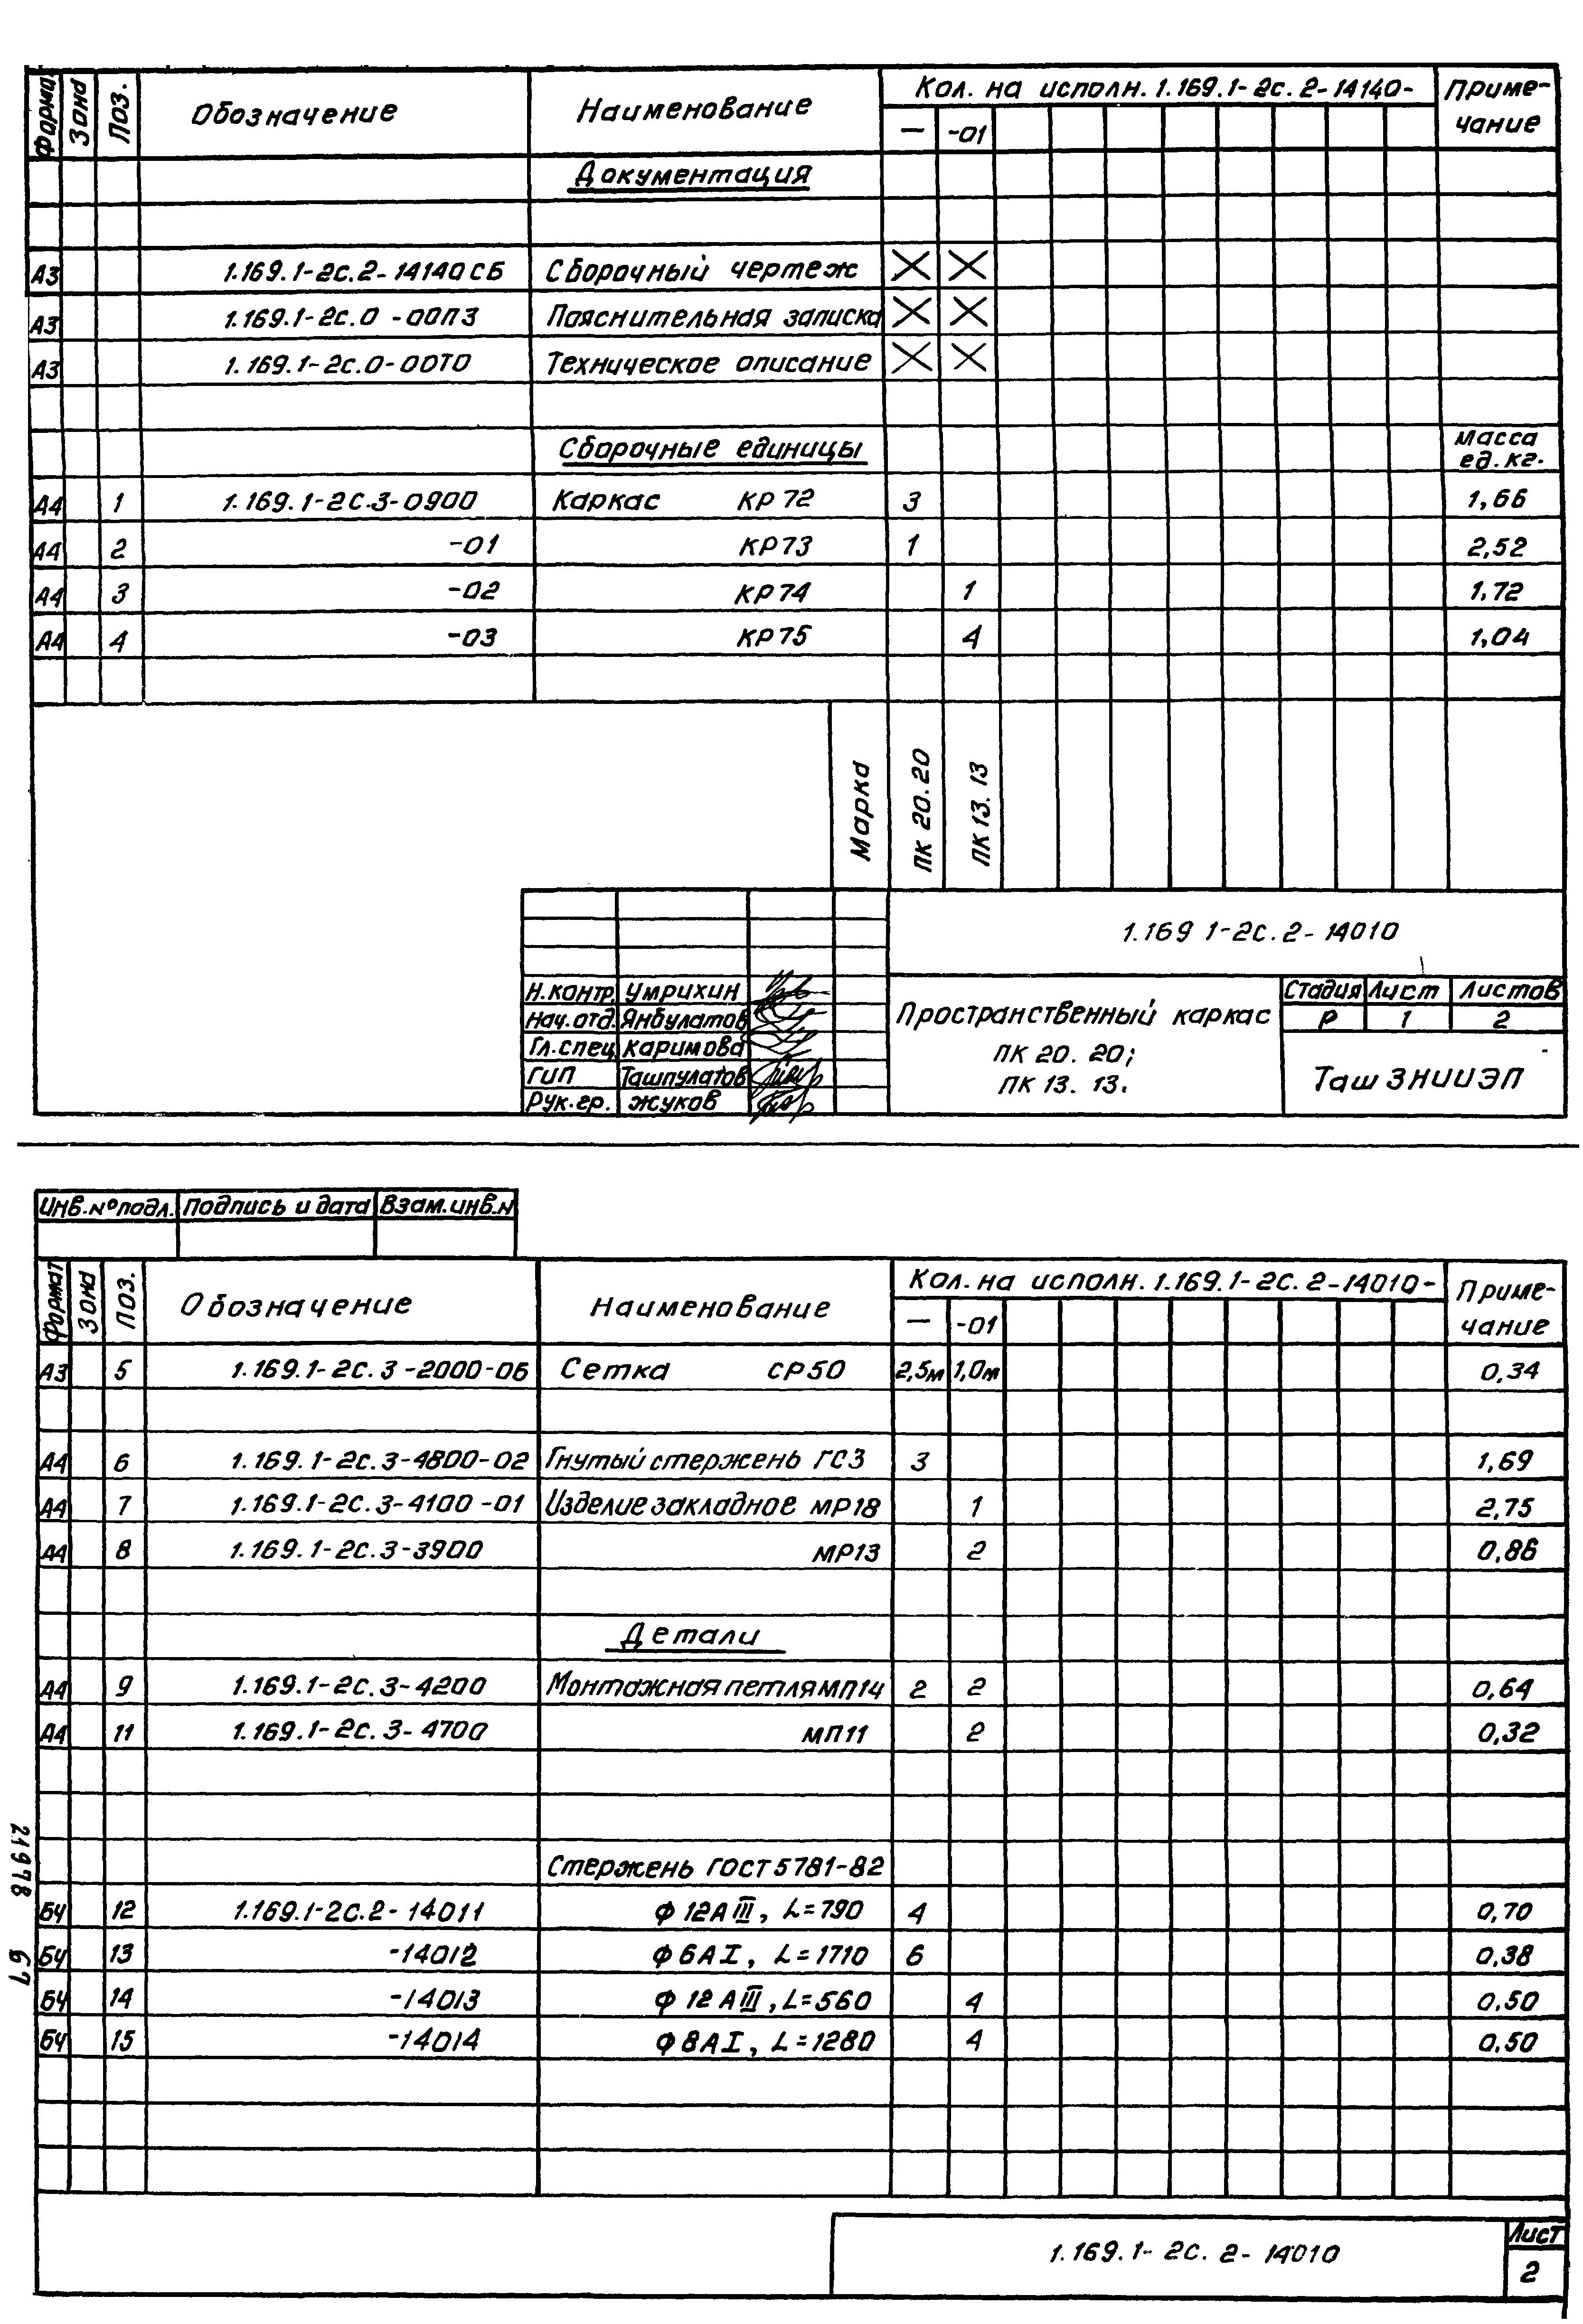 Формат Зона Поз. Обозначение Наименование Кол. на исполн. 1.169.1-2с.2-14140- Приме-чание
— -01
Документация
А3 1.169.1-2с.2-14140СБ Сборочный чертеж X X
А3 1.169.1-2с.0-00ПЗ Пояснительная записка X X
А3 1.169.1-2с.0-00ТО Техническое описание X X
Сборочные единицы масса ед.кг.
А4 1 1.169.1-2с.3-0900 Каркас КР72 3 1,66
А4 2 -01 КР73 1 2,52
А4 3 -02 КР74 1 1.72
А4 4 -03 КР75 4 1,04
Марка ПК 20.20 ПК 13.13
1.169 1-2с.2-14010
Н.контр. Умрихин
Нач.отд. Янбулатов
Гл.спец Каримова
ГИП Ташпулатов
Рук.гр. Жуков
Пространственный каркас
ПК 20.20;
ПК 13.13.
Стадия Лист Листов
Р 1 2
ТашЗНИИЭП
Инв.№подл. Подпись и дата Взам.инв.N
Формат Зона Поз. Обозначение Наименование Кол. на исполн. 1.169.1-2с.2-14010- Приме-чание
— -01
А3 5 1.169.1-2с.3-2000-06 Сетка СР50 2,5м 1,0м 0,34
А4 6 1.169.1-2с.3-4800-02 Гнутый стержень ГС3 3 1,69
А4 7 1.169.1-2с.3-4100-01 Изделие закладное МР18 1 2,75
А4 8 1.169.1-2с.3-3900 МР13 2 0,86
Детали
А4 9 1.169.1-2с.3-4200 Монтажная петля МП14 2 2 0,64
А4 11 1.169.1-2с.3-4700 МП11 2 0,32
Стержень ГОСТ 5781-82
БЧ 12 1.169.1-2с.2-14011 Ф 12АIII, L=790 4 0,70
БЧ 13 -14012 Ф 6АI, L=1710 6 0,38
БЧ 14 -14013 Ф 12АIII, L=560 4 0,50
БЧ 15 -14014 Ф 8АI, L=1280 4 0,50
21978 67
1.169.1-2с.2-14010
Лист
2